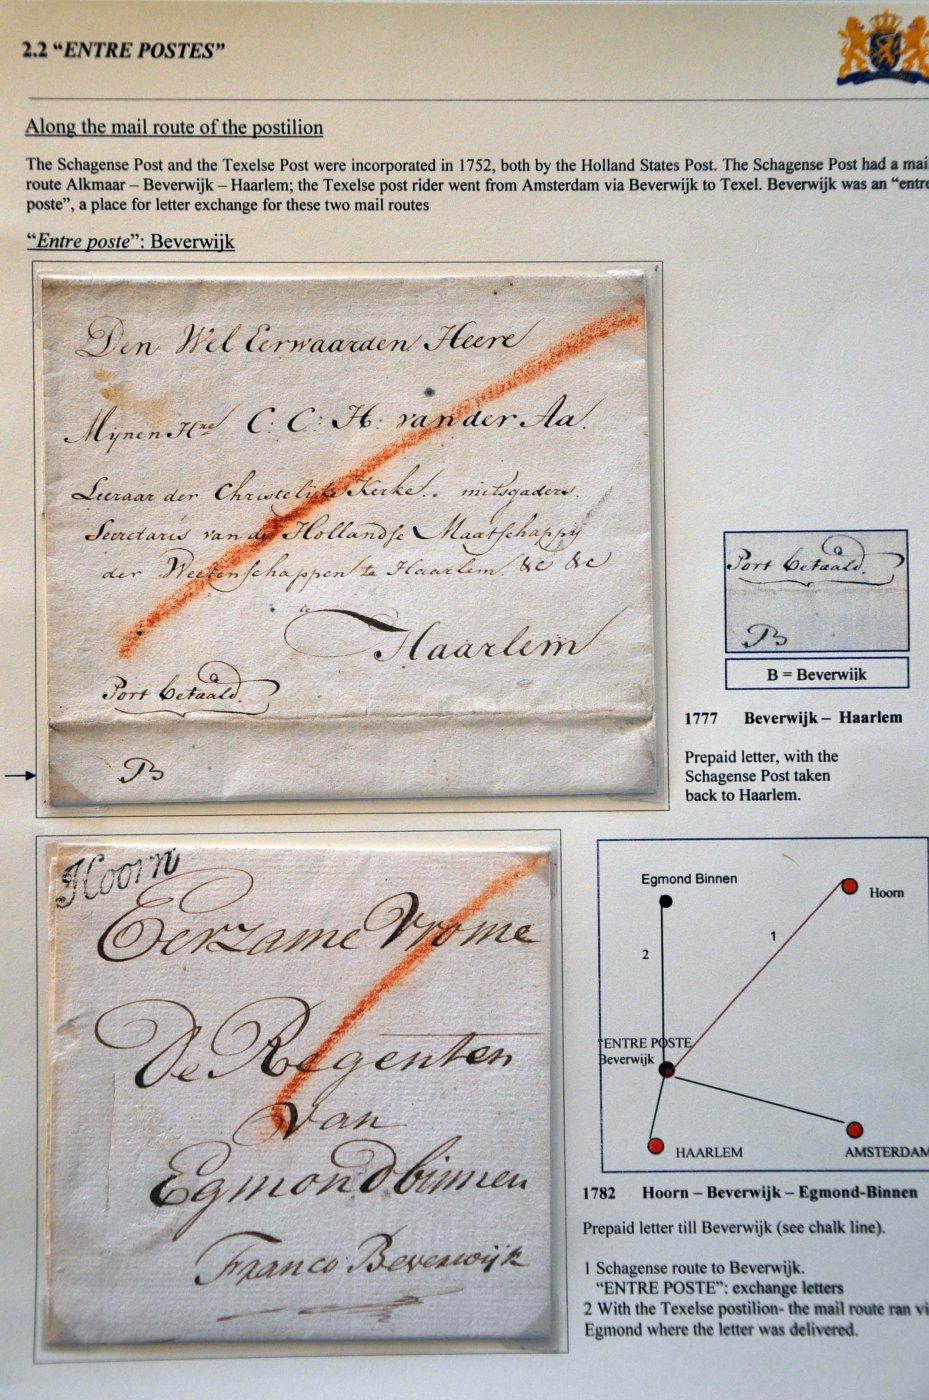 2.2 “ENTRE POSTES”
Along the mail route of the postilion
The Schagense Post and the Texelse Post were incorporated in 1752, both by the Holland States Post. The Schagense Post had a mai
route Alkmaar – Beverwijk – Haarlem; the Texelse post rider went from Amsterdam via Beverwijk to Texel. Beverwijk was an “entre
poste”, a place for letter exchange for these two mail routes
“Entre poste”: Beverwijk
Den Wel Eerwaarden Heere
Mijnen Hne C: C: H: van der Aa.
Leeraar der Christelijke Kerke. mitsgaders.
Secretaris van de Hollandse Maatschappy
der Weetenschappen te Haarlem. &c &c
te
Haarlem
Port betaald.
B
Port betaald.
B
B = Beverwijk
1777 Beverwijk – Haarlem
Prepaid letter, with the
Schagense Post taken
back to Haarlem.
Hoorn
Eerzame Vrome
De Regenten
van
Egmond binnen
Franco Beverwijk
Egmond Binnen
Hoorn
1
2
“ENTRE POSTE
Beverwijk
HAARLEM
AMSTERDAM
1782 Hoorn – Beverwijk – Egmond-Binnen
Prepaid letter till Beverwijk (see chalk line).
1 Schagense route to Beverwijk.
“ENTRE POSTE”: exchange letters
2 With the Texelse postilion- the mail route ran vi
Egmond where the letter was delivered.